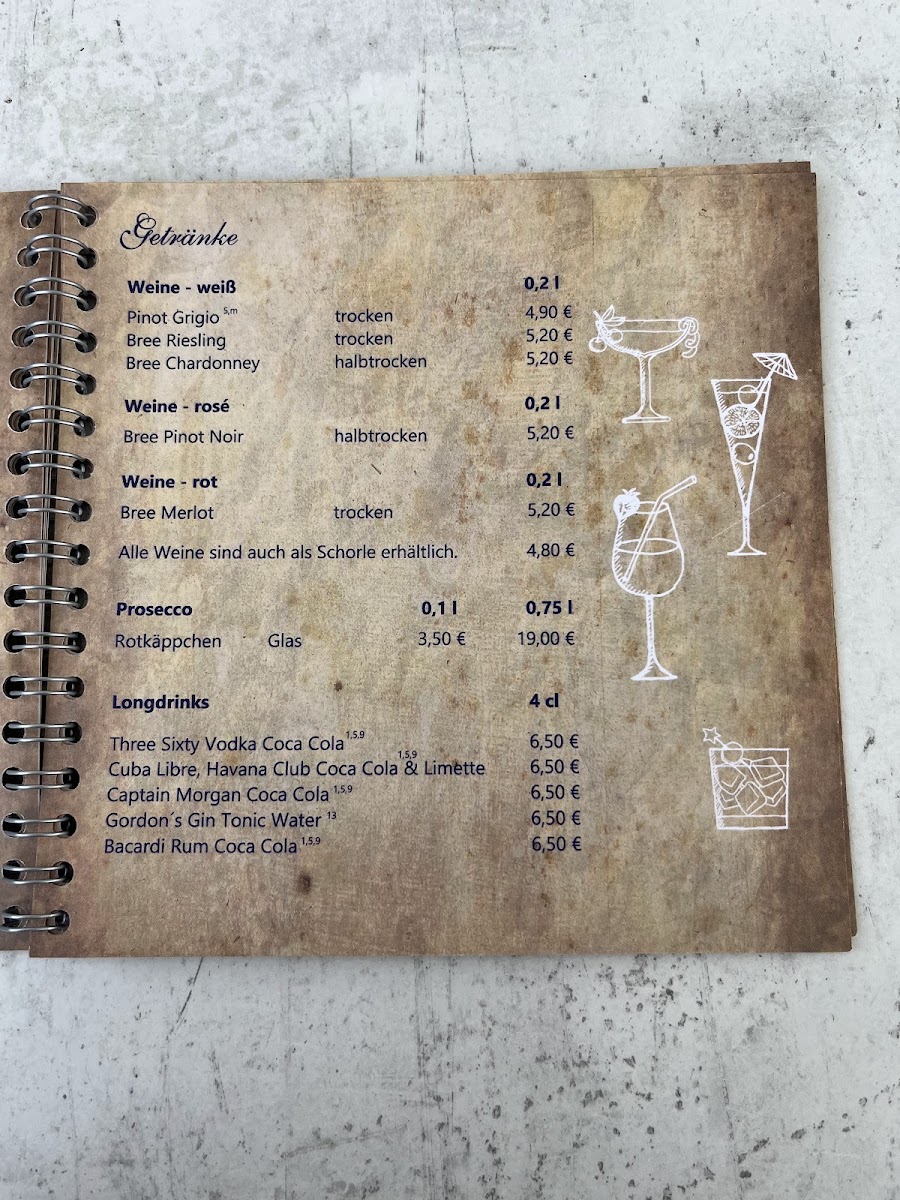 Getränke
Weine - weiß 0,2 l
Pinot Grigio 5,m trocken 4,90 €
Bree Riesling trocken 5,20 €
Bree Chardonney halbtrocken 5,20 €
Weine - rosé 0,2 l
Bree Pinot Noir halbtrocken 5,20 €
Weine - rot 0,2 l
Bree Merlot trocken 5,20 €
Alle Weine sind auch als Schorle erhältlich. 4,80 €
Prosecco 0,1 l 0,75 l
Rotkäppchen Glas 3,50 € 19,00 €
Longdrinks 4 cl
Three Sixty Vodka Coca Cola 1,5,9 6,50 €
Cuba Libre, Havana Club Coca Cola 1,5,9 & Limette 6,50 €
Captain Morgan Coca Cola 1,5,9 6,50 €
Gordon´s Gin Tonic Water 13 6,50 €
Bacardi Rum Coca Cola 1,5,9 6,50 €